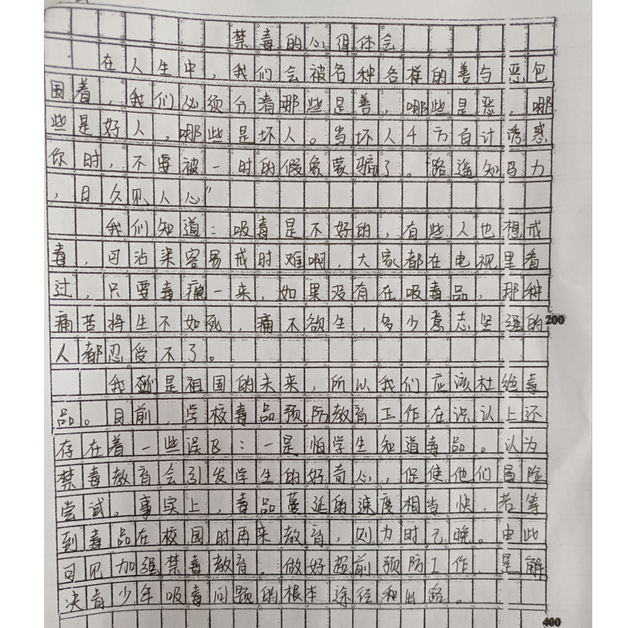 禁毒的心得体会
在人生中，我们会被各种各样的善与恶包
围着，我们必须分着哪些是善，哪些是恶，哪
些是好人，哪些是坏人。当坏人千方百计诱惑
你时，不要被一时的假象蒙骗了。“路遥知马力
，日久见人心”
我们知道：吸毒是不好的，有些人也想戒
毒，可沾染容易戒时难啊，大家都在电视里看
过，只要毒瘾一来，如果没有在吸毒品，那种
痛苦将生不如死，痛不欲生，多少意志坚强的
200
人都忍受不了。
我们是祖国的未来，所以我们应该杜绝毒
品。目前，学校毒品预防教育工作在识认上还
存在着一些误区：一是怕学生知道毒品。认为
禁毒教育会引发学生的好奇心，促使他们冒险
尝试。事实上，毒品蔓延的速度相当快，若等
到毒品在校园时再来教育，则为时已晚。由此
可见加强禁毒教育，做好超前预防工作，是解
决青少年吸毒问题的根本途径和出路。
400